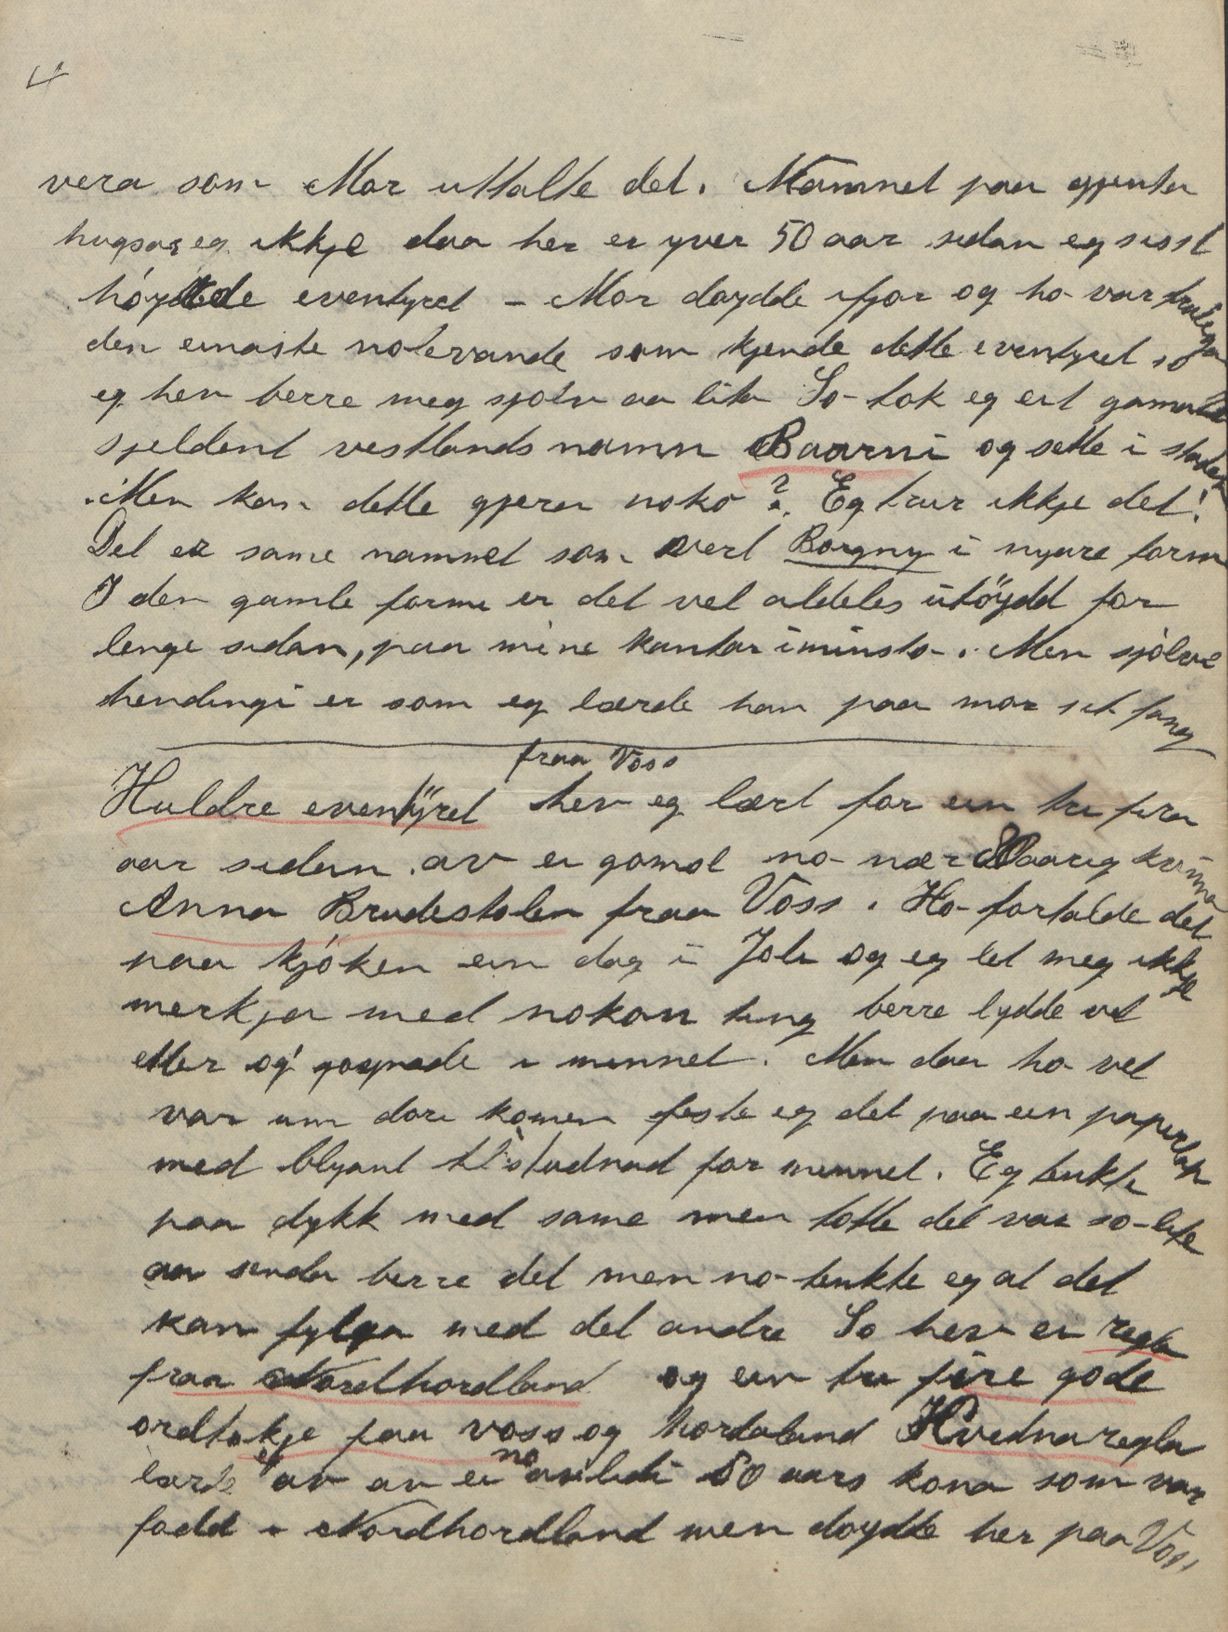 4
vera som Mor uttalte det. Namnet paa gjenta
hugsar eg ikkje daa her er yver 50 aar sidan eg sisst
høyrde eventyret – Mor døydde ifjor og ho var truleg
den einaste nolevande som kjende dette eventyret so
eg hev berre meg sjølv aa lita So tok eg eit gamalt
sjeldent vestlands namn Baarni og sette i staden
. Men kan dette gjera noko? Eg trur ikkje det!
Det er same namnet som vert Borgny i nyare form
I den gamle forme er det vel aldeles utøydd for
lenge sidan, paa mine kantar iminsto. Men sjølve
hendingi er som eg lærde han paa mor sit fang
fraa Voss
Huldre eventyret hev eg lært for ein tri fira
aar sidan av ei gomol no nær 80 aarig kvinna
Anna Brudestolen fraa Voss. Ho fortalde det
paa kjøken ein dag i Joli og eg let meg ikkje
merkja med nokon ting berre lydde vel
etter og gøymde i minnet. Men daa ho vel
var um døri komen feste eg det paa ein papirlap
med blyant til studnad for minnet. Eg tenkte
paa dykk med same men totte det var so lite
aa senda berre det men no tenkte eg at det
kan fylgja med det andre So hev ei regla
fraa Nordhordland og ein tri fire gode
ordtøkje paa voss og hordaland Kvednaregla
lærde eg av ei no avlidi 80 aars kona som var
fødd i Nordhordland men døydde her paa Voss